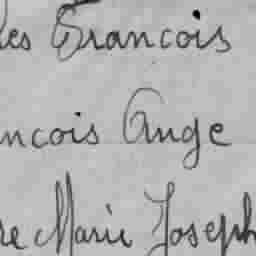 les Francois
ncois Ange
re Marie Joseph